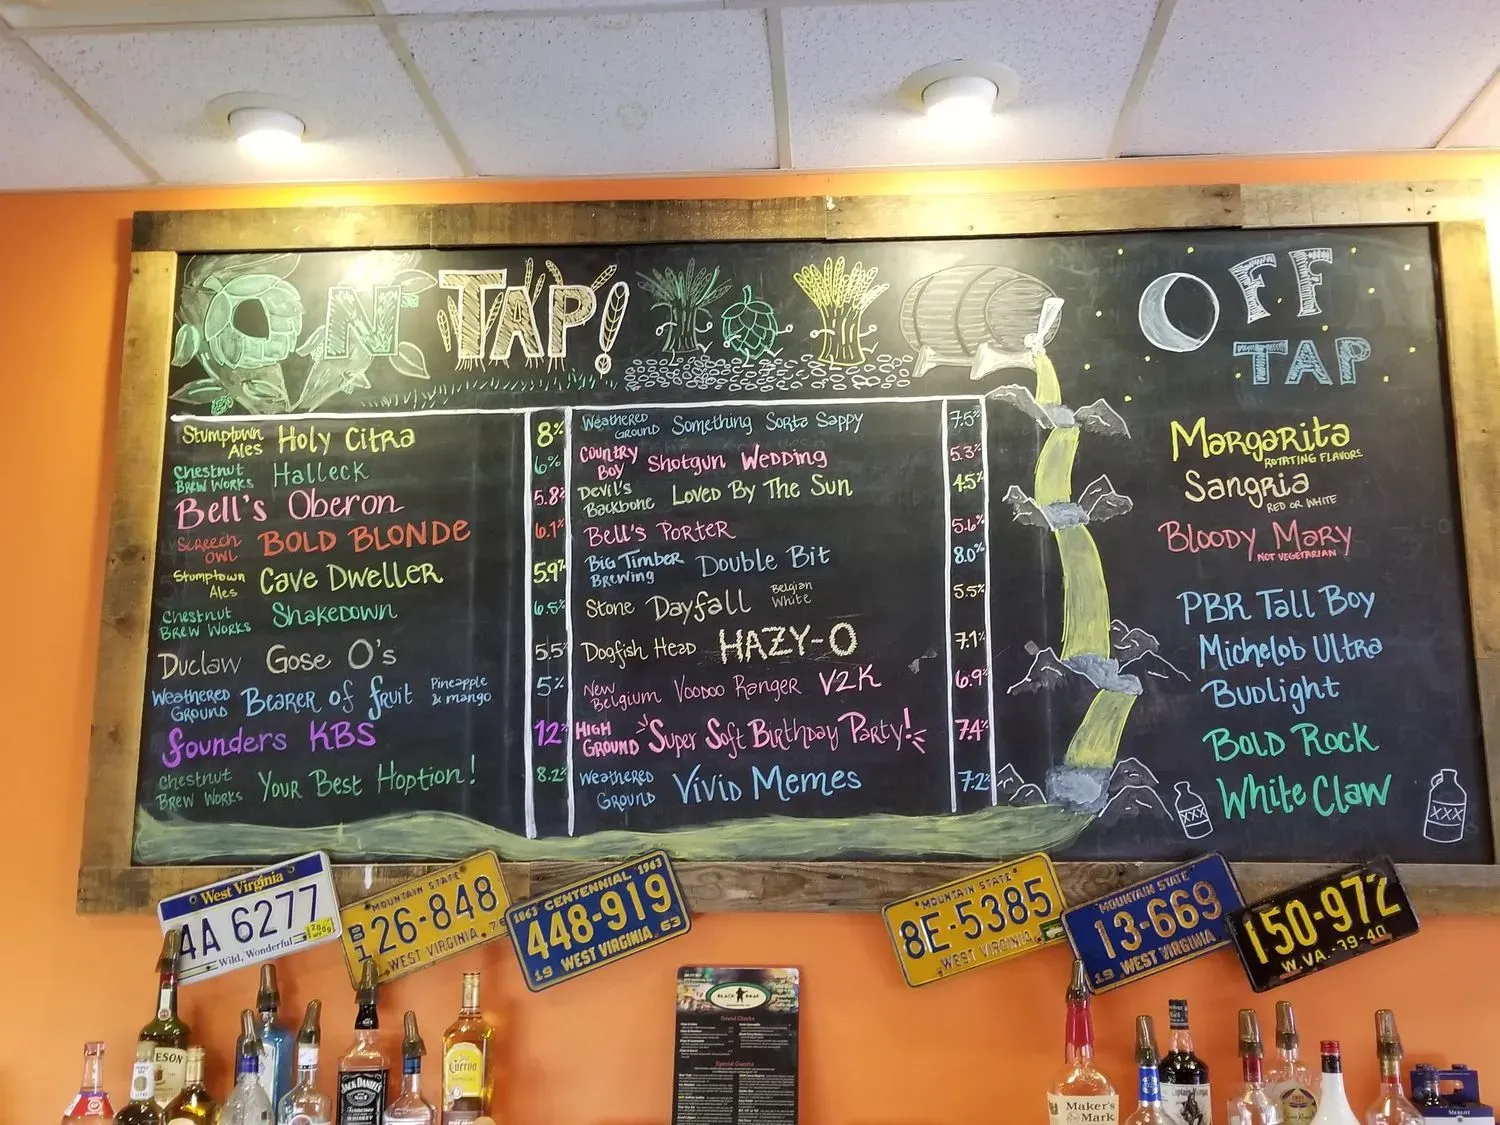 ON TAP!
OFF
TAP
Stumptown Ales Holy Citra 8%
Chestnut Brew Works Halleck 6%
Bell's Oberon 5.8%
Screech Owl BOLD BLONDE 6.1%
Stumptown Ales Cave Dweller 5.9%
Chestnut Brew Works Shakedown 6.5%
Duclaw Gose O's 5.5%
Weathered Ground Bearer of fruit Pineapple & mango 5%
founders KBS 12%
Chestnut Brew Works Your Best Hoption! 8.2%
Weathered Ground Something Sorta Sappy 7.5%
Country Boy Shotgun Wedding 5.3%
Devil's Backbone Loved By The Sun 4.5%
Bell's Porter 5.6%
Big Timber Brewing Double Bit 8.0%
Stone Dayfall Belgian White 5.5%
Dogfish Head HAZY-O 7.1%
New Belgium Voodoo Ranger V2K 6.9%
HIGH GROUND Super Soft Birthday Party! 7.4%
Weathered Ground Vivid Memes 7.2%
Margarita
ROTATING FLAVORS
Sangria
RED OR WHITE
Bloody Mary
NOT VEGETARIAN
PBR Tall Boy
Michelob Ultra
Budlight
Bold Rock
White Claw
XXX
XXX
West Virginia
4A 6277
Wild, Wonderful
MOUNTAIN STATE
B1 26-848
WEST VIRGINIA. 76
1863 CENTENNIAL 1963
448-919
19 WEST VIRGINIA 63
MOUNTAIN STATE
8E-5385
WEST VIRGINIA
MOUNTAIN STATE
13-669
19 WEST VIRGINIA
150-972
W.VA.-39-40
BLACK BEAR
Special Guests
JACK DANIEL'S
Tennessee
WHISKEY
Cuervo
Maker's
Mark
MERLOT